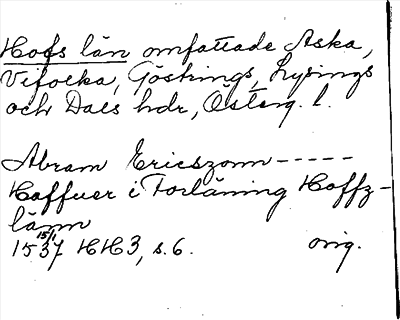 Hofs län omfattade Aska,
Vifolka, Göstrings, Lysings
och Dals hdr, Österg. l.
Abram Ericszonn-----
Haffuer i Forläning Hoffz-
länn
15/1
1537 HH3, s. 6. orig.